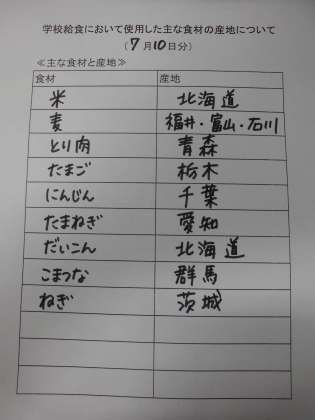 学校給食において使用した主な食材の産地について
(7月10日分)
≪主な食材と産地≫
食材 産地
米 北海道
麦 福井・富山・石川
とり肉 青森
たまご 栃木
にんじん 千葉
たまねぎ 愛知
だいこん 北海道
こまつな 群馬
ねぎ 茨城